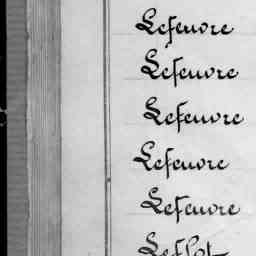 Lefeuvre
Lefeuvre
Lefeuvre
Lefeuvre
Lefeuvre
Leflot